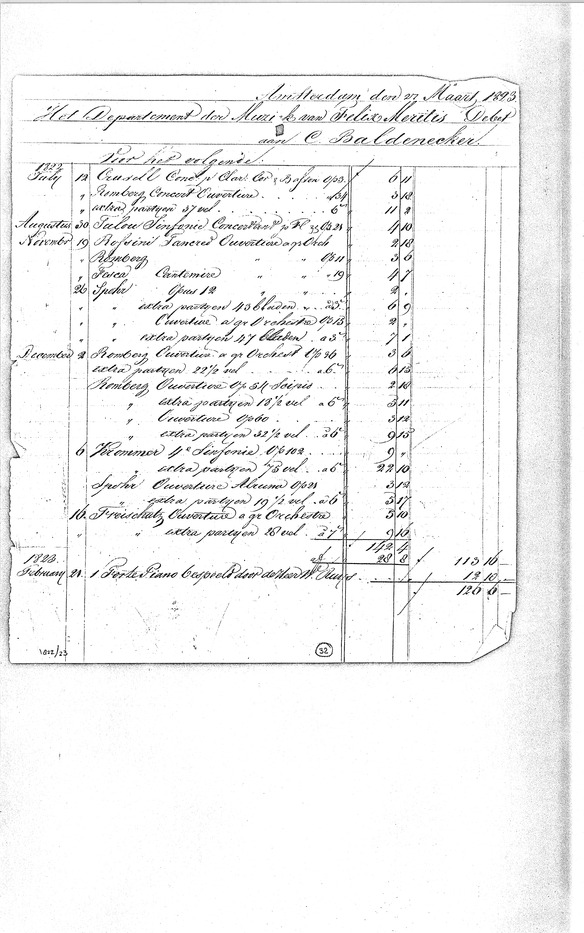 Amsterdam den 22 Maart 1823
Het Departement der Muziek van Felix Meritis Debet
aan C. Baldenecker
Voor het volgende
1822
July 12 Crusell Conc. p Clar. Cor & Basson 6 11
" Romberg Concert Ouverture 3 12
" extra partyen 37 vel 6 11 2
Augustus 30 Tulou Sinfonie Concertant p Fl 4 10
November 19 Rossini Tancred Ouverture a gr Orch 2 18
" Romberg " " Op 11 3 6
" Fesca Cantemire " " " 19 4 7
" 26 Spohr Opus 12 " " 2 "
" " extra partyen 43 bladen " a 3 6 9
" " Ouverture a gr Orchestre Op 15 2 "
" " extra partyen 47 bladen a 3 7 1
December 2 Romberg Ouverture a gr Orchest Op 36 3 6
extra partyen 22½ vel a 6 6 15
Romberg Ouverture Op 34 2 18
" extra partyen 18½ vel a 6 5 11
" Ouverture Op 60 3 12
" extra partyen 32½ vel a 6 9 15
6 Krommer 4e Sinfonie Op 102 9 "
" extra partyen 75 vel a 6 22 10
Spohr Ouverture Alruna Op 21 3 12
" extra partyen 19½ vel a 6 5 17
16 Freischutz Ouverture a gr Orchestre 3 10
" " extra partyen 28 vel a 7 9 16
142 4
28 8 113 16 —
1823
February 21 1 Forte Piano bespeeld door de Heer W. 12 10 —
126 6 —
1822/23
32